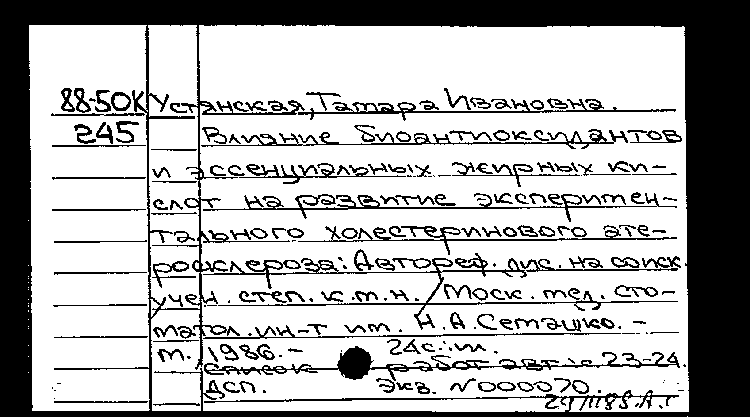 88-50К Устянская, Тамара Ивановна.
245 Влияние биоантиоксидантов
и эссенциальных жирных ки-
слот на развитие эксперимен-
тального холестеринового ате-
росклероза: Автореф. дис. на соиск.
учен. степ. к.м.н. / Моск. мед. сто-
матол. ин-т им. Н.А.Семашко. -
М., 1986. - 24с.: ил.
Список работ авт.: с. 23-24.
ДСП. Экз. N000070